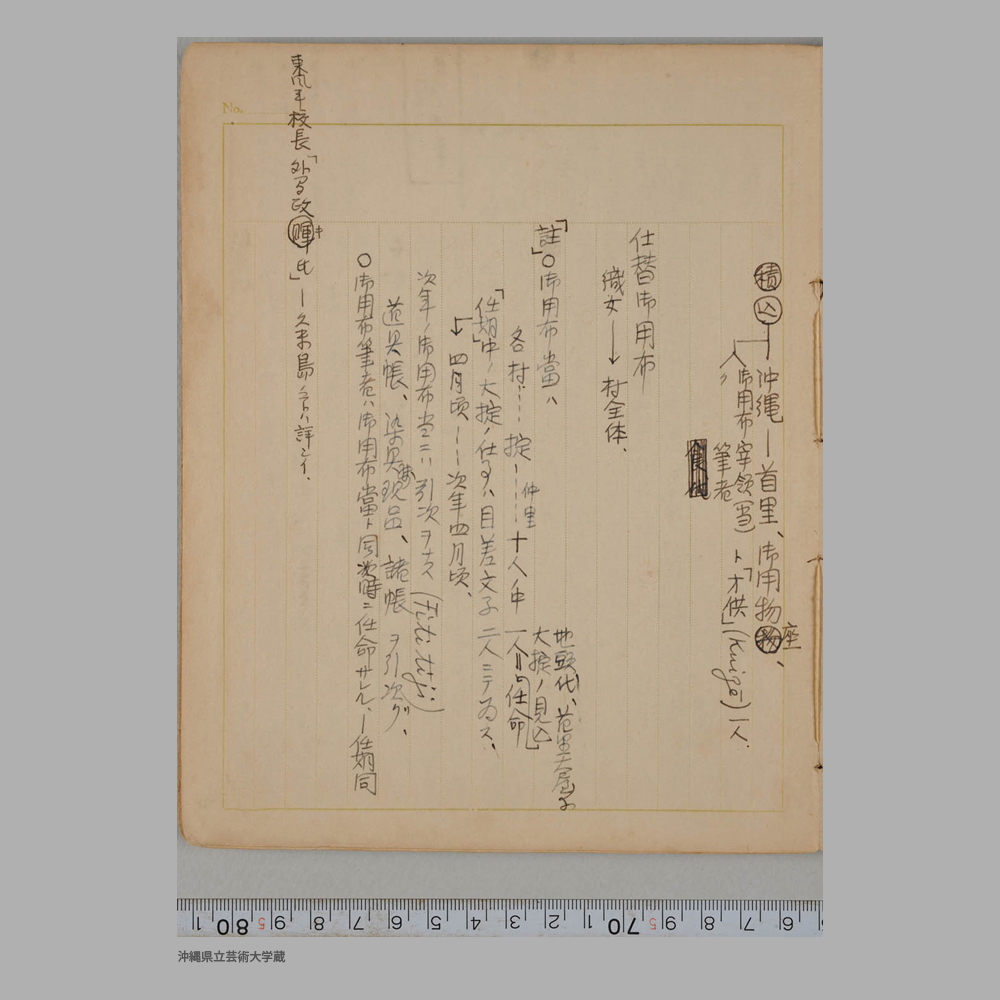 積込 沖縄―首里、御用物座、
人々 御用布宰領(当)ト「才供」(Kuigē)一人.
筆者
仕替御用布
織女→村全体、
「註」○御用布當ハ
地頭代、
大掟ノ見込
各村……掟―仲里……十人中 一人ヲ任命
「任期中」大掟ノ仕事ハ目差文子二人ニテ為ス、
四月頃――次年四月頃、
次年ノ御用布当ニハ引次ヲナス(Fititiji)
道具帳、染具現品、諸帳ヲ引次グ、
○御用布筆者ハ御用布當ト同時ニ任命サレル、―任期同
校長「
氏」―久米島ノコトハ詳シイ.
No.
沖縄県立芸術大学蔵